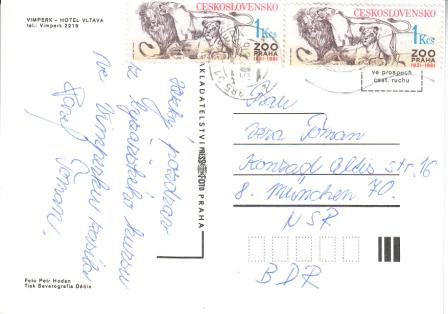 VIMPERK – HOTEL VLTAVA
tel.: Vimperk 2219
Srdečný pozdrav
z
kursu
ve Vimperku zasílá
Tomani
Foto Petr Hodan
Tisk Severografia Děčín
NAKLADATELSTVÍ PRESSFOTO PRAHA
ČESKOSLOVENSKO
1 Kčs
ZOO
PRAHA
1931-1981
ČESKOSLOVENSKO
1 Kčs
ZOO
PRAHA
1931-1981
ve prospěch
cest. ruchu
Věra Toman
Konrad Celtis str. 16
8. München 70.
NSR
BDR